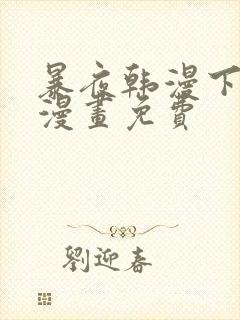 暴夜韩漫下
漫畫免費
劉迎春